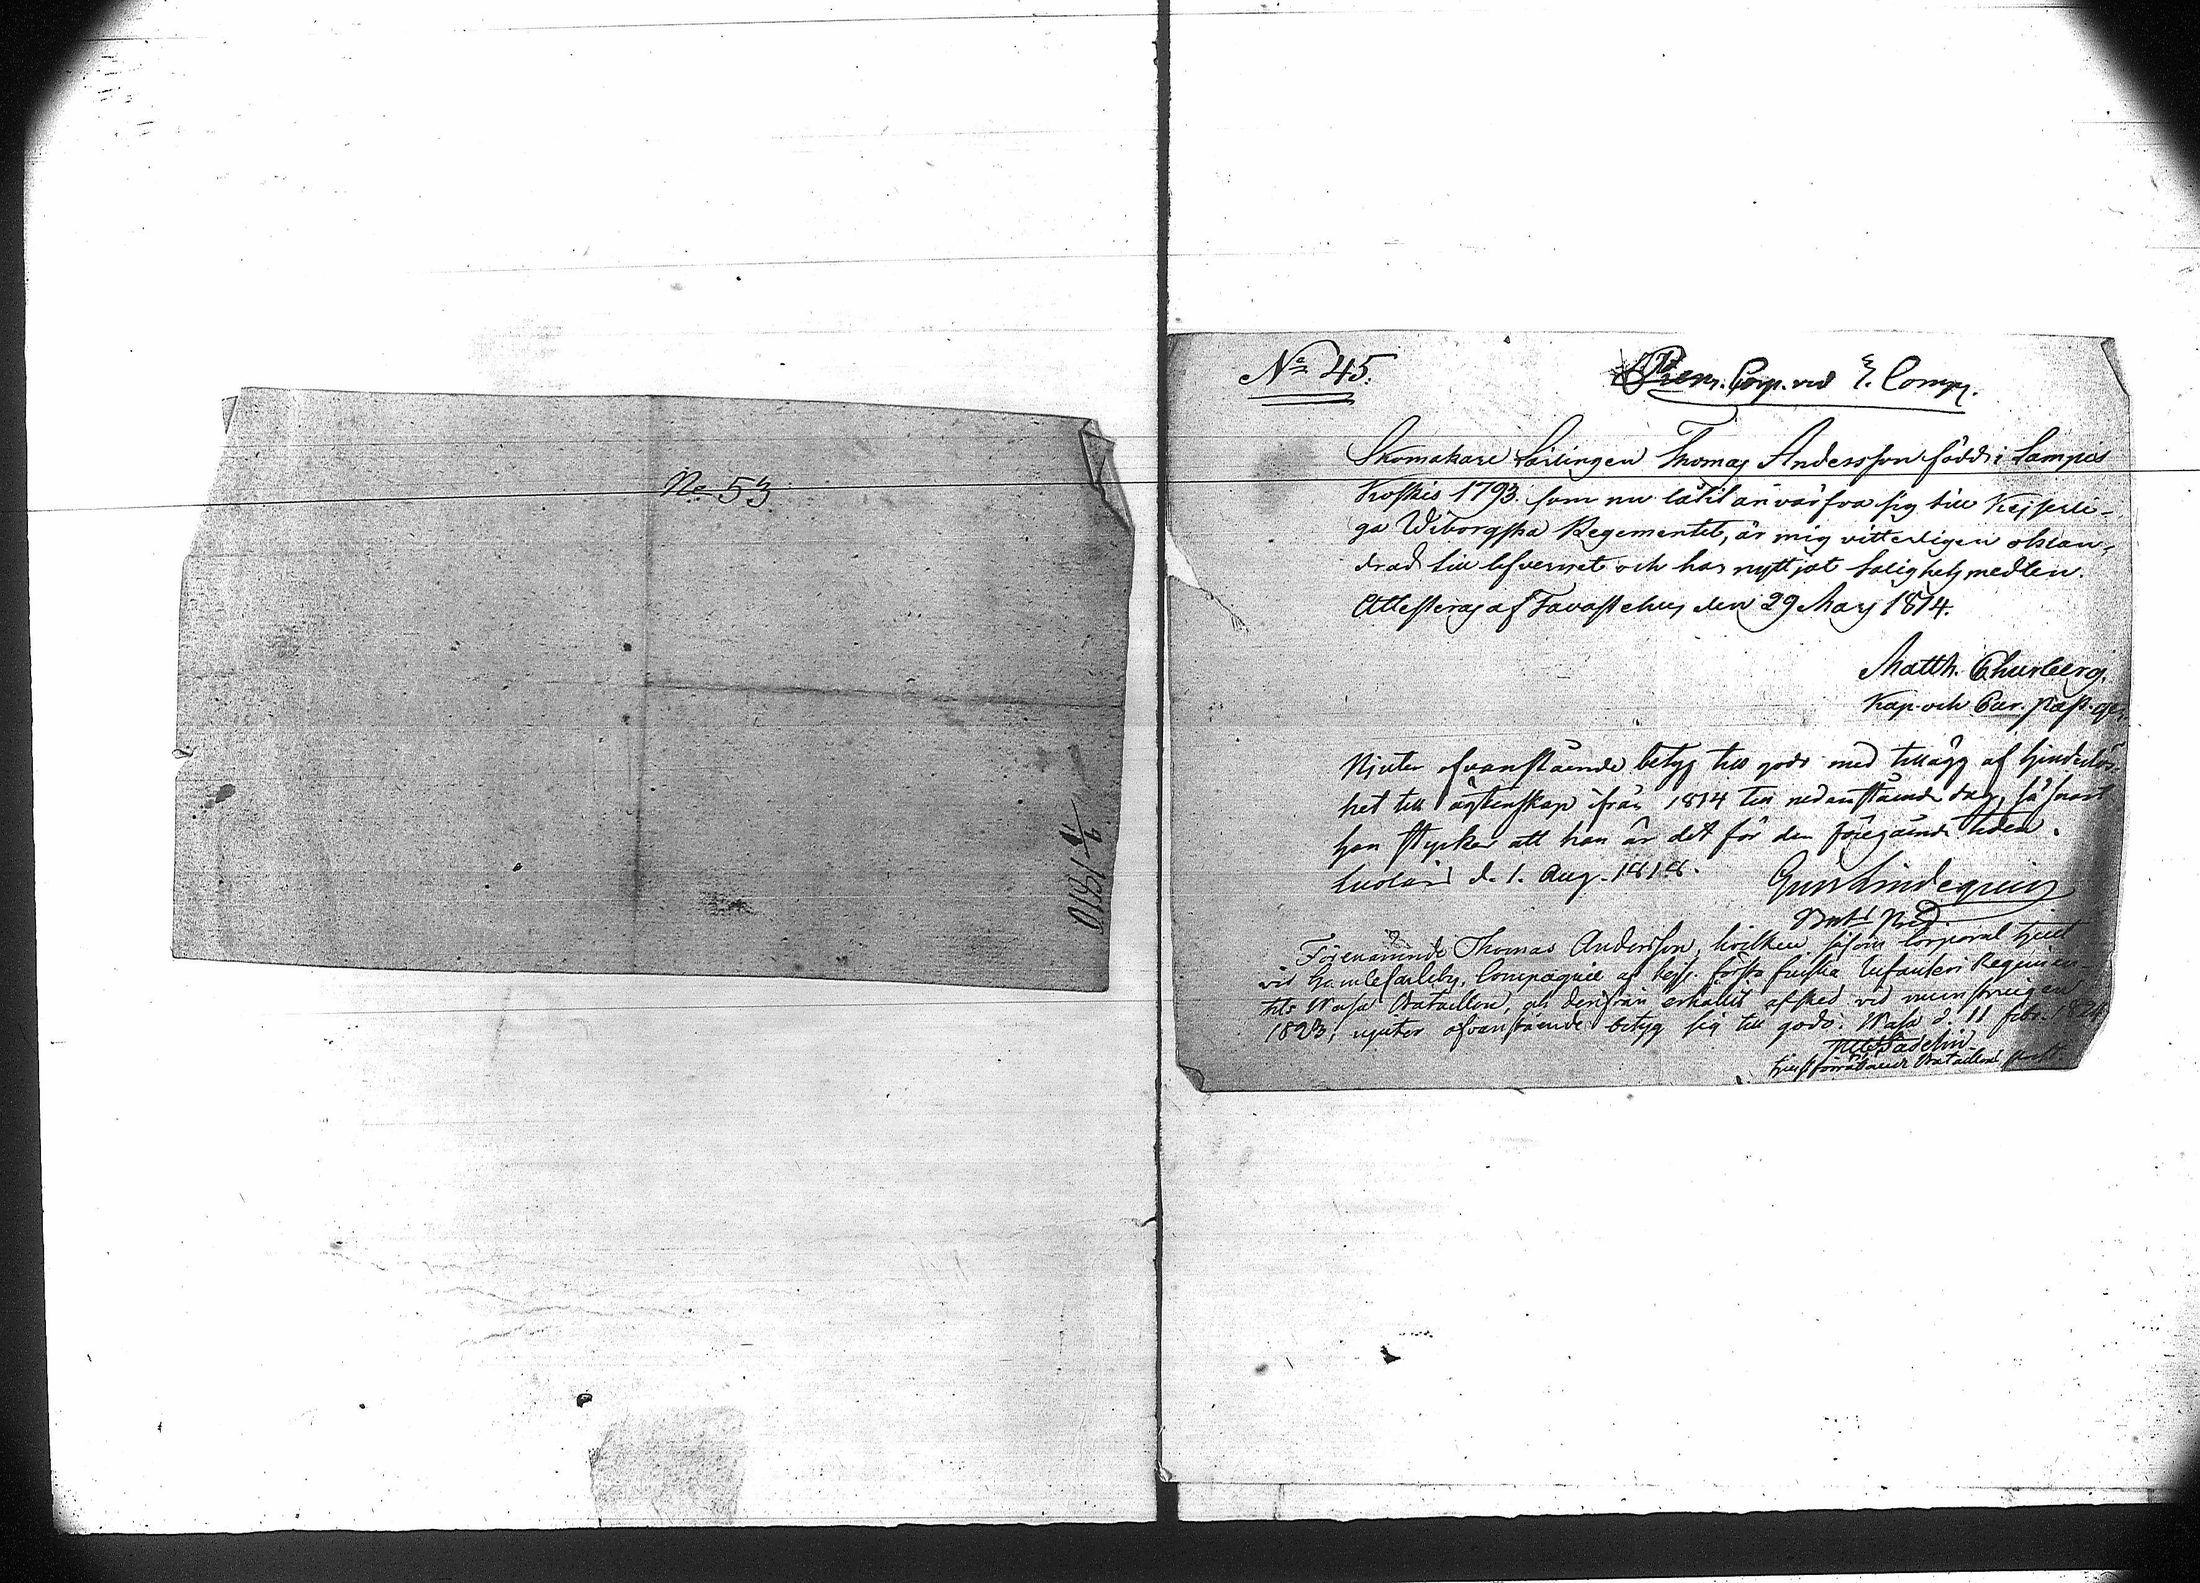 No 53
No 45.
Prem. Corp. vid E. Comp.
Skomakare Lärlingen Thomas Andersson född i Lampis
Koskis 1793. som nu låtit anvärfva sig till Kejserli-
ga Wiborgska Regementet, är mig vitterligen oklan-
drad till lefvernet och har nyttjat Salighetsmedlen.
Attesteras af Tavastehus den 29 Maij 1814.
Matth. Churberg.
Kap. och Cur. Past. 
Njuter ofvanstående betyg till godo med tillägg af hinderlös-
het till ägtenskap ifrån 1814 till nedanstående dag, så snart
han styrker att han är det för den föregående tiden.
d. 1. Aug. 1818.
Gust Lindequist
Bat. Pred.
Förenämnde Thomas Andersson, hvilken såsom Corporal tjent
vid Gamlecarleby Compagnie af Kejs. första finska Infanteri Regimen-
tets Wasa Bataillon, och derifrån erhållit afsked vid mönstringen
1823, njuter ofvanstående betyg sig till godo. Wasa d. 11 febr. 1824
tjenstförrättande Bataillons Past.